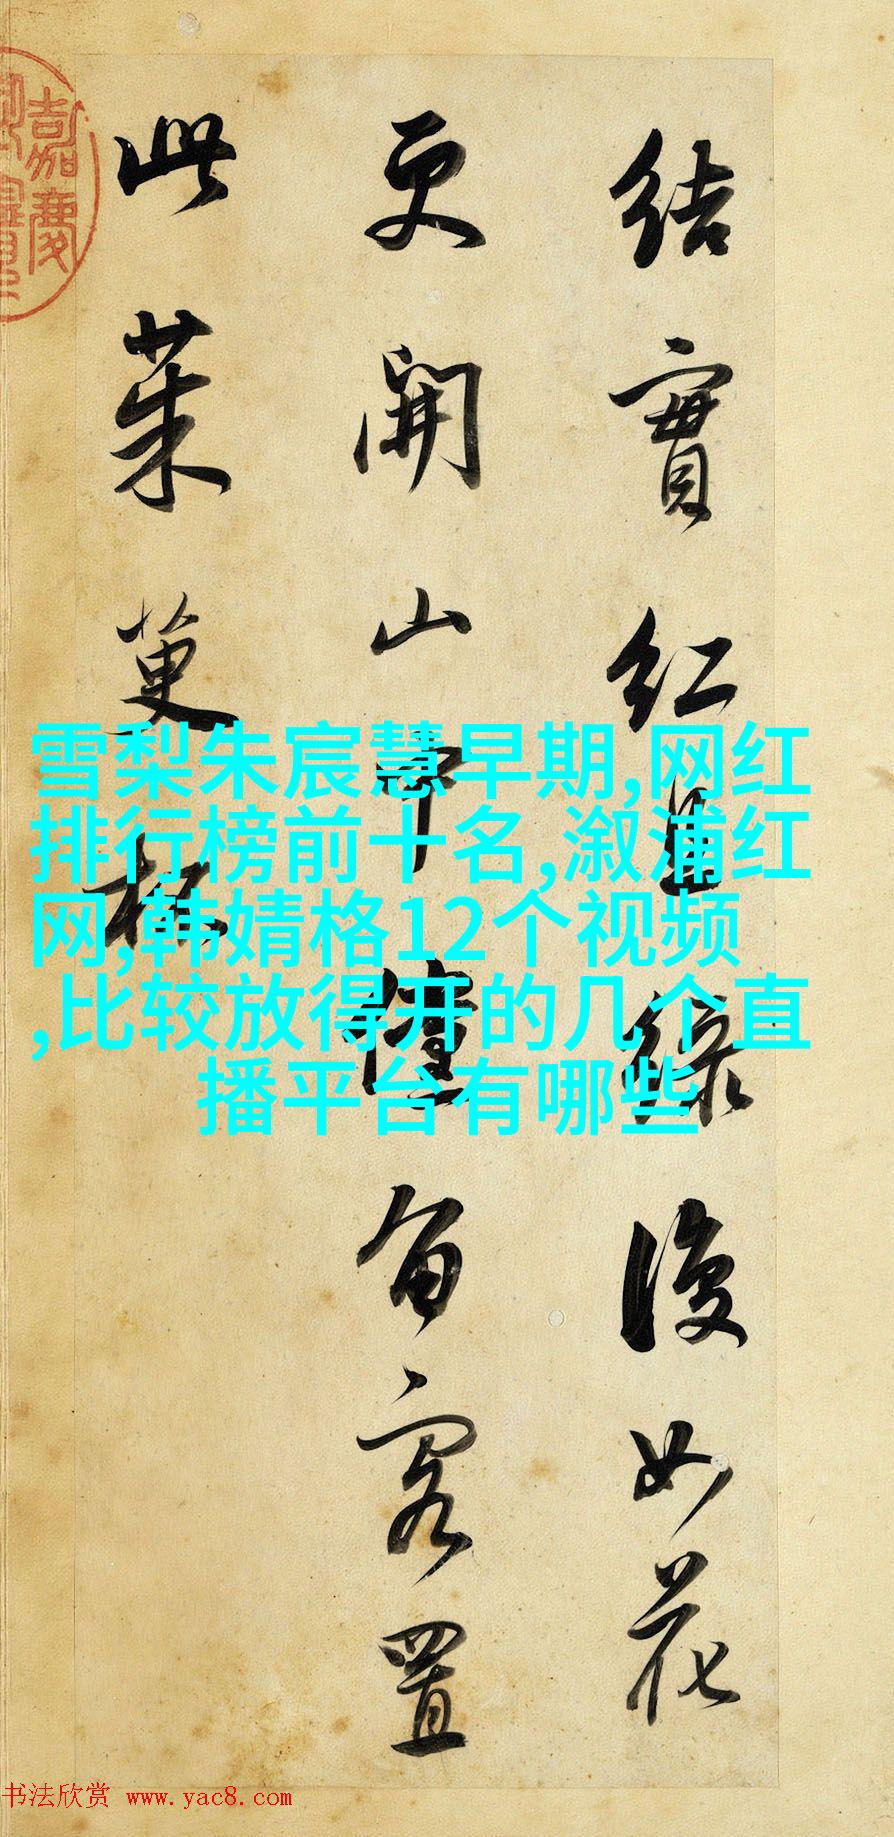 結實紅且綠復如花
更開山中儻留客置
此茱萸杯
嘉慶
雪梨朱宸慧早期,网红
排行榜前十名,溆浦红
网,韩婧格12个视频
,比较放得开的几个直
播平台有哪些
书法欣赏 www.yac8.com